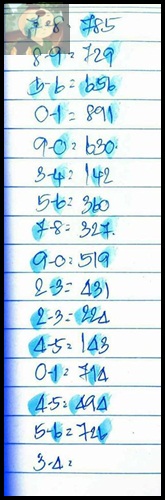 7-8 785
8-9=729
5-6=656
0-1=891
9-0=630.
3-4=142
5-6=360
7-8=327.
9-0=519
2-3=431
2-3=224
4-5=143
0-1=714
4-5=494
5-6=726
3-4=